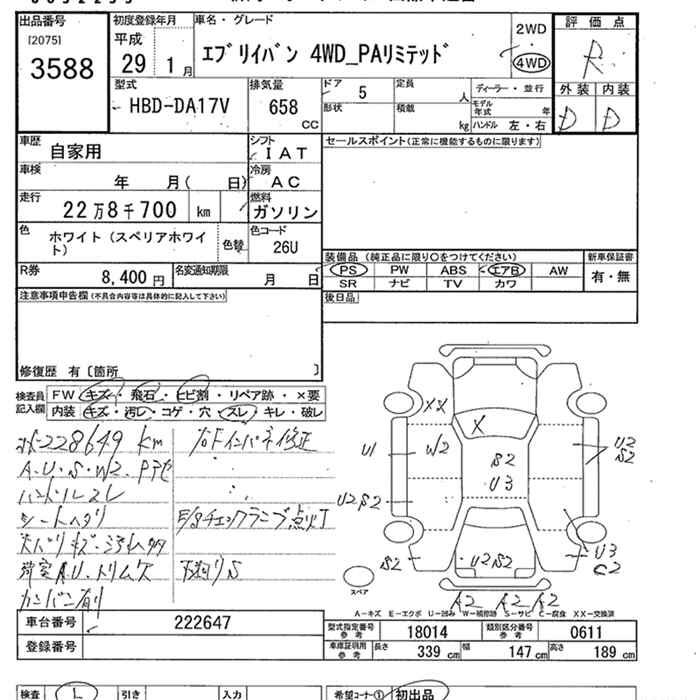 出品番号
[2075]
3588
初度登録年月
平成
29 1月
車名・グレード
エブリイバン 4WD_PAリミテッド
2WD
4WD
評価点
R
外装 内装
D D
型式
HBD-DA17V
排気量
658
CC
ドア
5
定員
人
ディーラー・並行
形状
積載
kg
モデル年式 年
ハンドル 左・右
車歴
自家用
シフト
IAT
セールスポイント(正常に機能するものに限ります)
車検
年 月( 日)
冷房
AC
走行
22万8千700 km
燃料
ガソリン
色
ホワイト(スペリアホワイト)
色替
色コード
26U
装備品 (純正品に限り○をつけてください)
新車保証書
PS PW ABS エアB AW
有・無
SR ナビ TV カワ
R券
8,400 円
名変通知期限
月 日
後日品
注意事項申告欄(不具合内容等は具体的に記入して下さい)
修復歴 有〔箇所 〕
検査員記入欄
FW キズ・飛石・ヒビ割・リペア跡・×要
内装 キズ・汚レ・コゲ・穴・スレ・キレ・破レ
228649 km
右Fインパネ修正
A・U・S・W2・
ハンドルスレ
シートヘタリ
E/Gチェックランプ点灯
荷室A.U.トリムキズ
下廻りS
カンバン有り
XX
X
U1
W2
S2
U3
U2
S2
U2S2
S2
U2S2
U3
C2
A2 A2 A2
スペア
A-キズ E-エクボ U-凹み W-補修跡 S-サビ C-腐食 XX-交換済
車台番号
222647
登録番号
型式指定番号 参考
18014
類別区分番号 参考
0611
車庫証明用 参考
長さ 339 cm
幅 147 cm
高さ 189 cm
検査
L
引き
入力
希望コーナー①
初出品